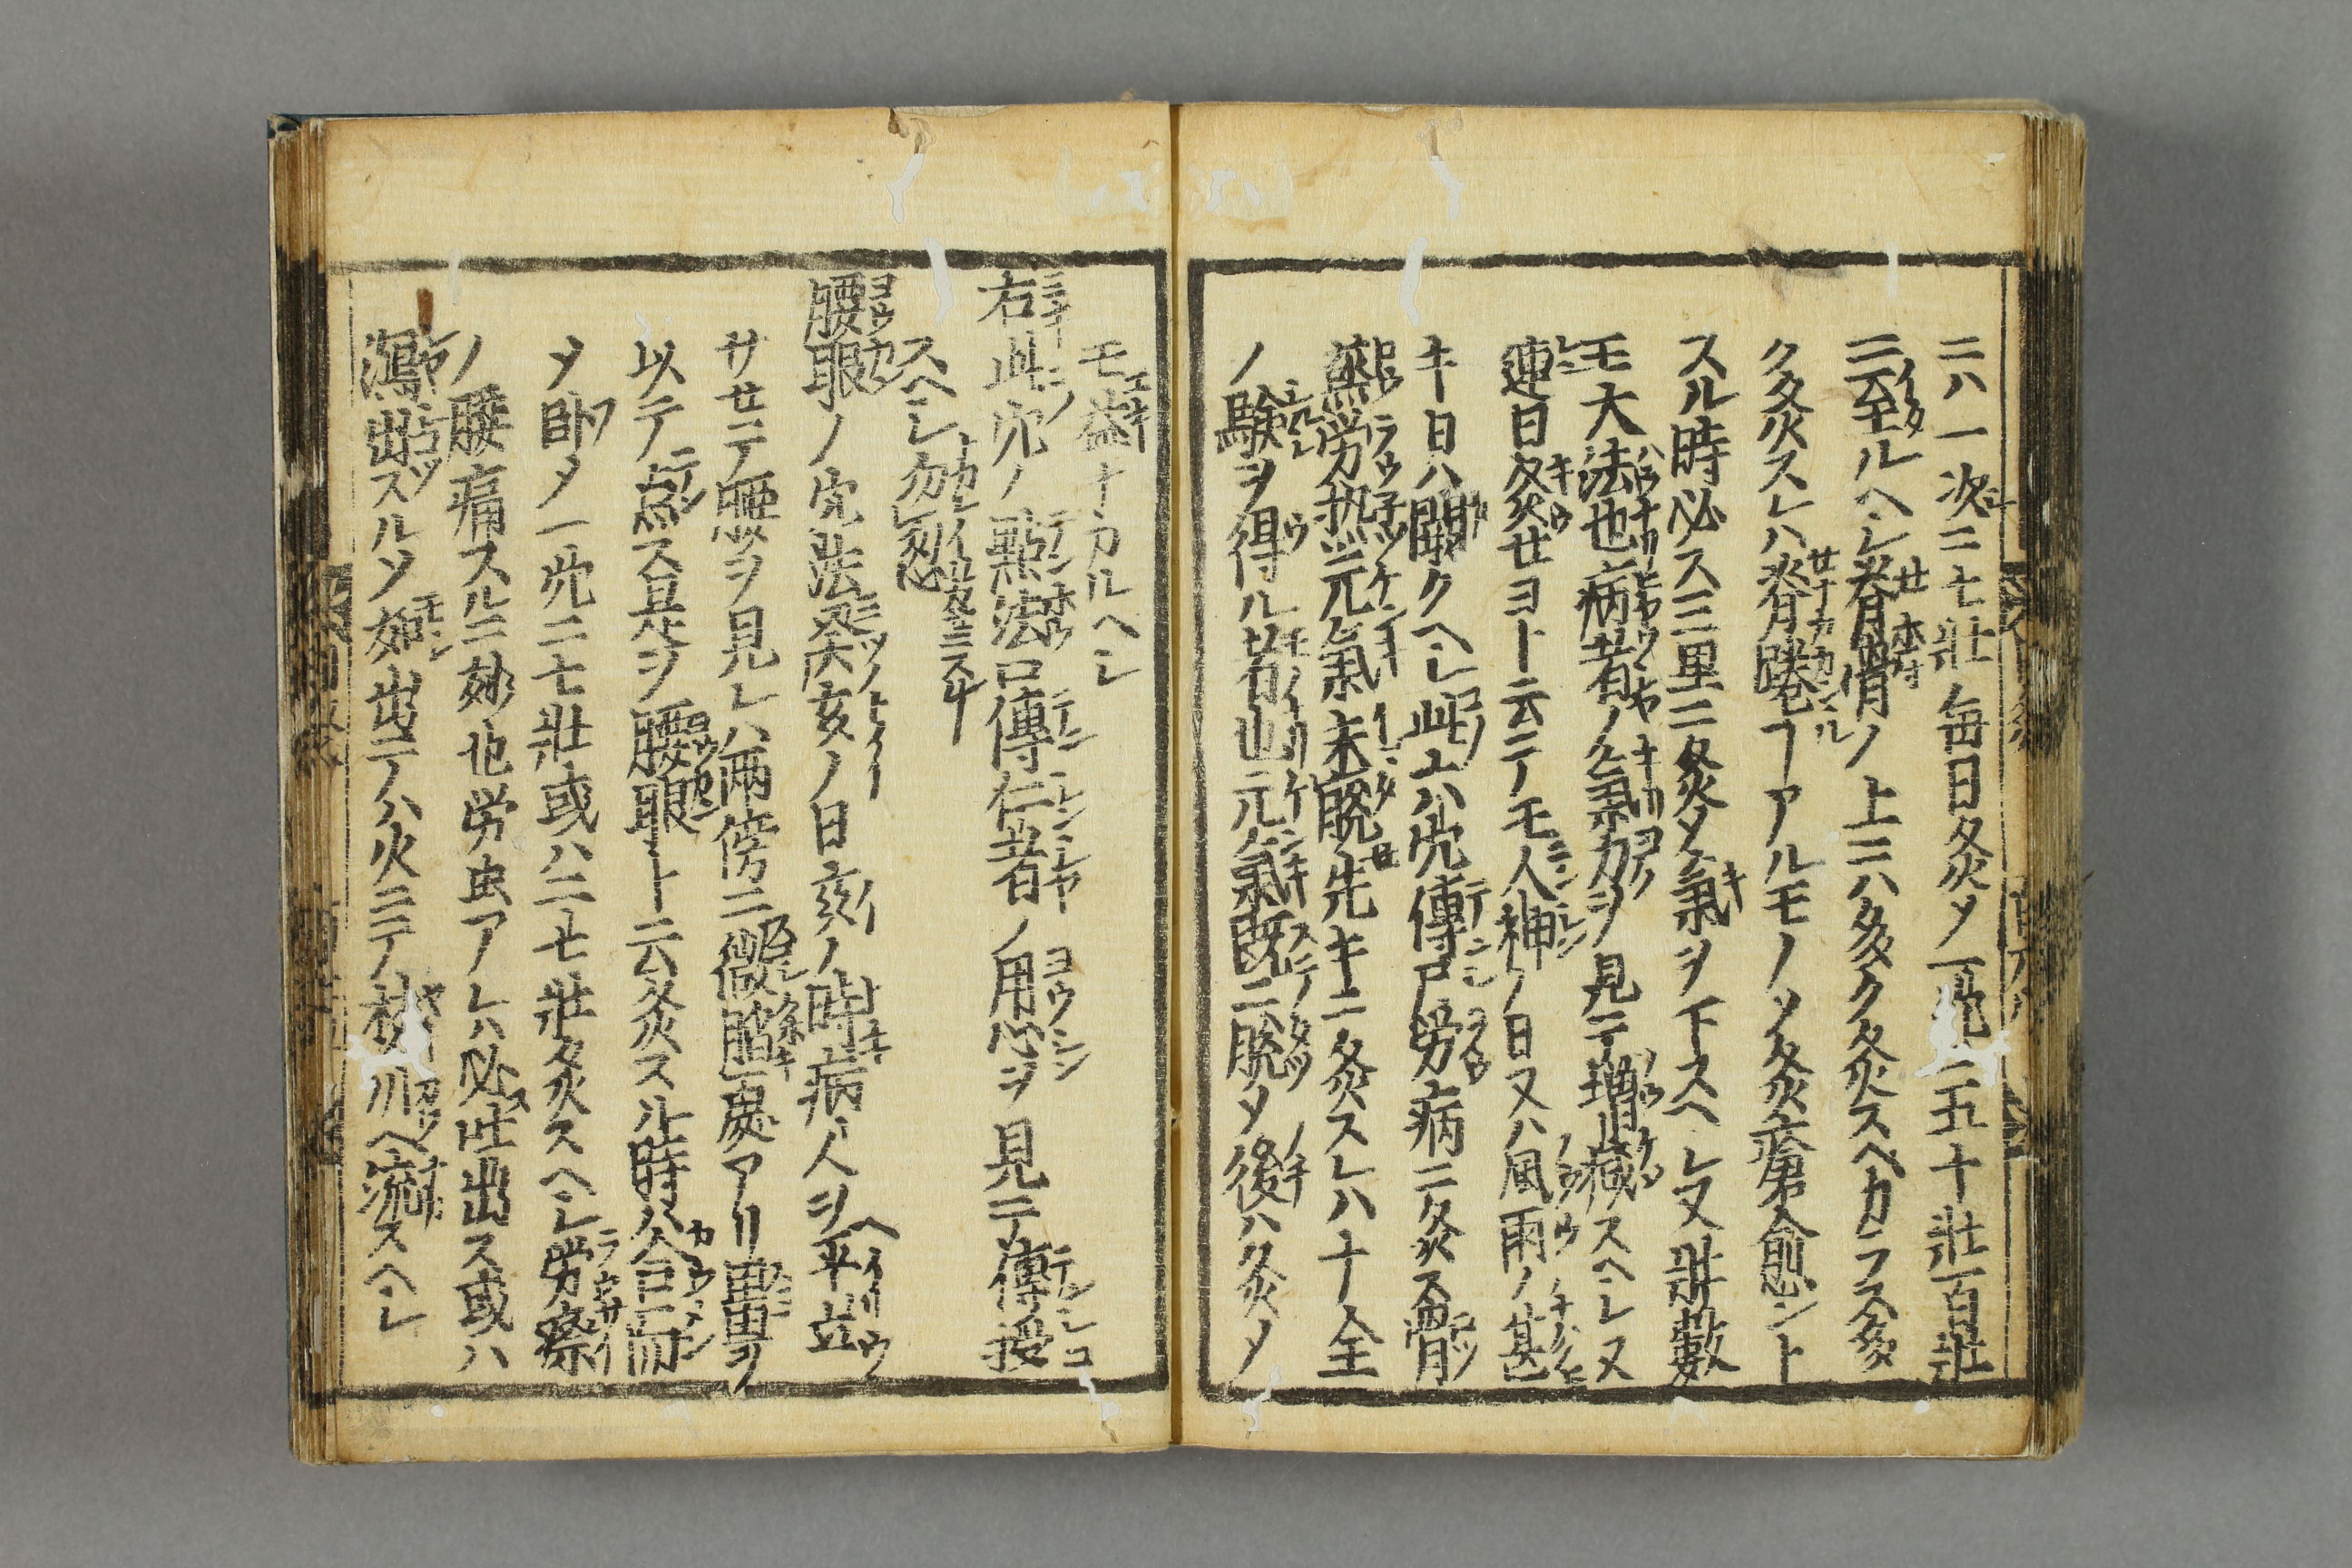 ニハ一次ニ七壯毎日灸メ一処ニ五十壯百壯
ニ至ルヘシ脊骨ノ上ニハ多ク灸スベカラス多
ク灸スレハ脊踡ヿアルモノソ灸瘡愈ント
スル時必ス三里ニ灸メ氣ヲ下スヘシ又壯數
モ大法也病者ノ氣力ヲ見テ増減スヘシ又
連日灸せヨト云テモ人神ノ日又ハ風雨ノ甚
キ日ハ閣クヘシ此六穴傳尸労病ニ灸ス骨
蒸労热元氣未脫先キニ灸スレハ十全
ノ驗ヲ得ル者也元氣既ニ脫メ後ハ灸メ
モ益ナカルヘシ
右此穴ノ點法口傳仁者ノ用心ヲ見テ傳授
スヘシ勿忽
腰眼ノ穴法癸亥ノ日亥ノ時病人ヲ平立
サせテ腰ヲ見レハ兩傍ニ微陷處アリ墨ヲ
以テ点ス是ヲ腰眼ト云灸スル時ハ合面
メ卧メ一穴ニ七壯或ハ二七壯灸スヘシ労瘵
ノ腰痛スルニ妙也労虫アレハ必吐出ス或ハ
瀉出スルソ如出テハ火ニテ焼川ヘ流スヘシ